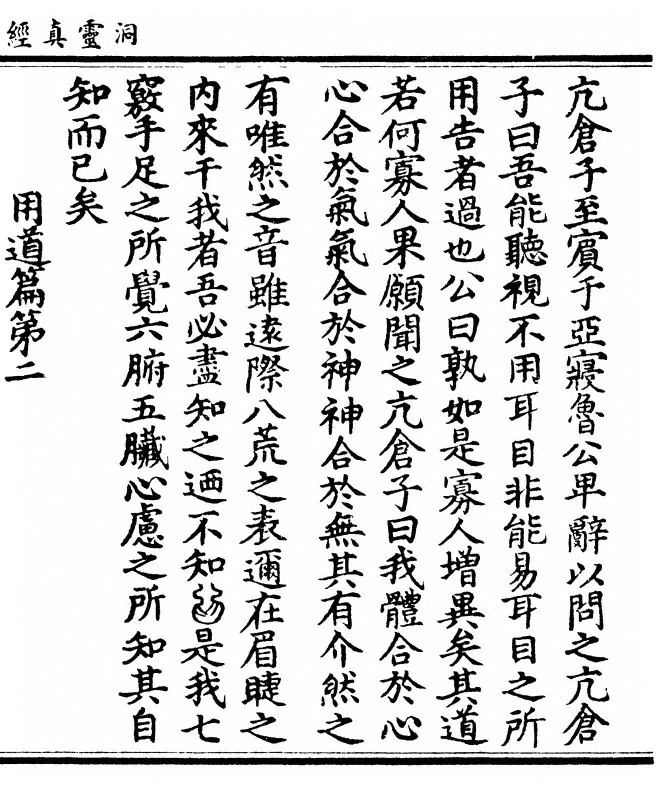 洞靈真經
亢倉子至賔于亞寢魯公卑辭以問之亢倉
子曰吾能聽視不用耳目非能易耳目之所
用告者過也公曰孰如是寡人增異矣其道
若何寡人果願聞之亢倉子曰我體合於心
心合於氣氣合於神神合於無其有介然之
有唯然之音雖遠際八荒之表邇在眉睫之
内來干我者吾必盡知之迺不知是我七
竅手足之所覺六腑五臟心慮之所知其自
知而已矣
用道篇第二